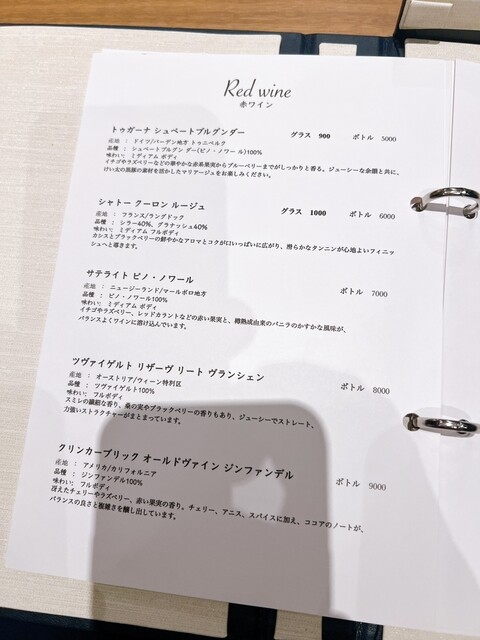 Red wine
赤ワイン
トゥガーナ シュペートブルグンダー グラス 900 ボトル 5000
産地 : ドイツ/バーデン地方 トゥニベルク
品種 : シュペートブルグンダー(ピノ・ノワール)100%
味わい: ミディアム ボディ
イチゴやラズベリーなどの華やかな赤系果実からブルーベリーまでがしっかりと香る。ジューシーな余韻と共に、
けい太の鳥豚の素材を活かしたマリアージュをお楽しみください。
シャトー クーロン ルージュ グラス 1000 ボトル 6000
産地 : フランス/ラングドック
品種 : シラー40%、グラナッシュ40%
味わい: ミディアム フルボディ
カシスとブラックベリーの鮮やかなアロマとコクが口いっぱいに広がり、滑らかなタンニンが心地よいフィニッ
シュへと導きます。
サテライト ピノ・ノワール ボトル 7000
産地 : ニュージーランド/マールボロ地方
品種 : ピノ・ノワール100%
味わい: ミディアム ボディ
イチゴやラズベリー、レッドカラントなどの赤い果実と、樽熟成由来のバニラのかすかな風味が、
バランスよくワインに溶け込んでいます。
ツヴァイゲルト リザーヴ リート ヴランシェン ボトル 8000
産地 : オーストリア/ウィーン特別区
品種 : ツヴァイゲルト100%
味わい: フルボディ
スミレの繊細な香り、桑の実やブラックベリーの香りもあり、ジューシーでストレート、
力強いストラクチャーがまとまっています。
クリンカーブリック オールドヴァイン ジンファンデル ボトル 9000
産地 : アメリカ/カリフォルニア
品種 : ジンファンデル100%
味わい: フルボディ
冴えたチェリーやラズベリー、赤い果実の香り。チェリー、アニス、スパイスに加え、ココアのノートが、
バランスの良さと複雑さを醸し出しています。